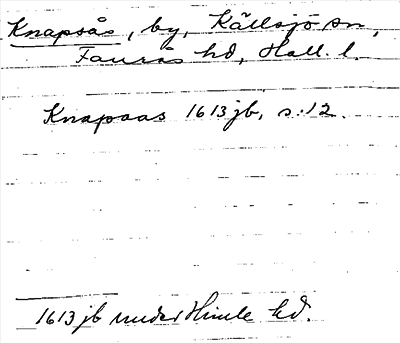 Knapsås, by, Källsjö sn,
Faurås hd, Hall. l.
Knapaas 1613 jb, s: 12.
1613 jb under Himle hd.